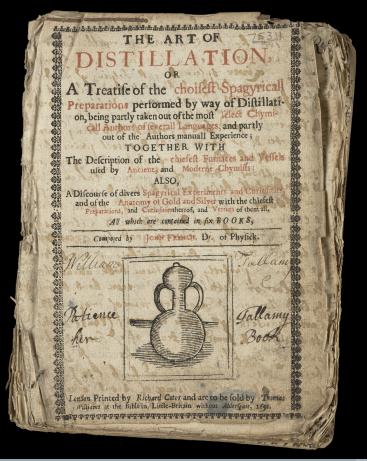 THE ART OF
DISTILLATION,
OR
A Treatise of the choisest Spagyricall
Preparations performed by way of Distillati-
on, being partly taken out of the most select Chymi-
call Authors of severall Languages, and partly
out of the Authors manuall Experience;
TOGETHER WITH
The Description of the chiefest Furnaces and Vessels
used by Ancient, and Moderne Chymists:
ALSO,
A Discourse of divers Spagyricall Experiments and Curiosities,
and of the Anatomy of Gold and Silver with the chiefest
Preparations, and Curiosities thereof, and Vertues of them all.
All which are contained in six BOOKS,
Composed by JOHN FRENCH, Dr. of Physick.
William Tallamy
Patience Tallamy
her Book
London Printed by Richard Cotes and are to be sold by Thomas
Williams at the Bible in Little-Britain without Aldersgate, 1651.